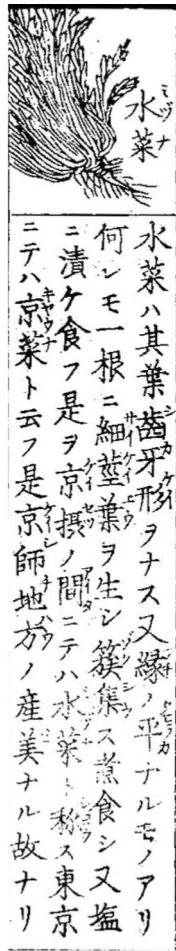 水菜
ミヅナ
水菜ハ其葉齒牙形ヲナス又縁ノ平ナルモノアリ
何レモ一根ニ細莖葉ヲ生シ簇集ス煮食シ又塩
ニ漬ケ食フ是ヲ京摂ノ間ニテハ水菜ト称ス東京
ニテハ京菜ト云フ是京師地方ノ産美ナル故ナリ